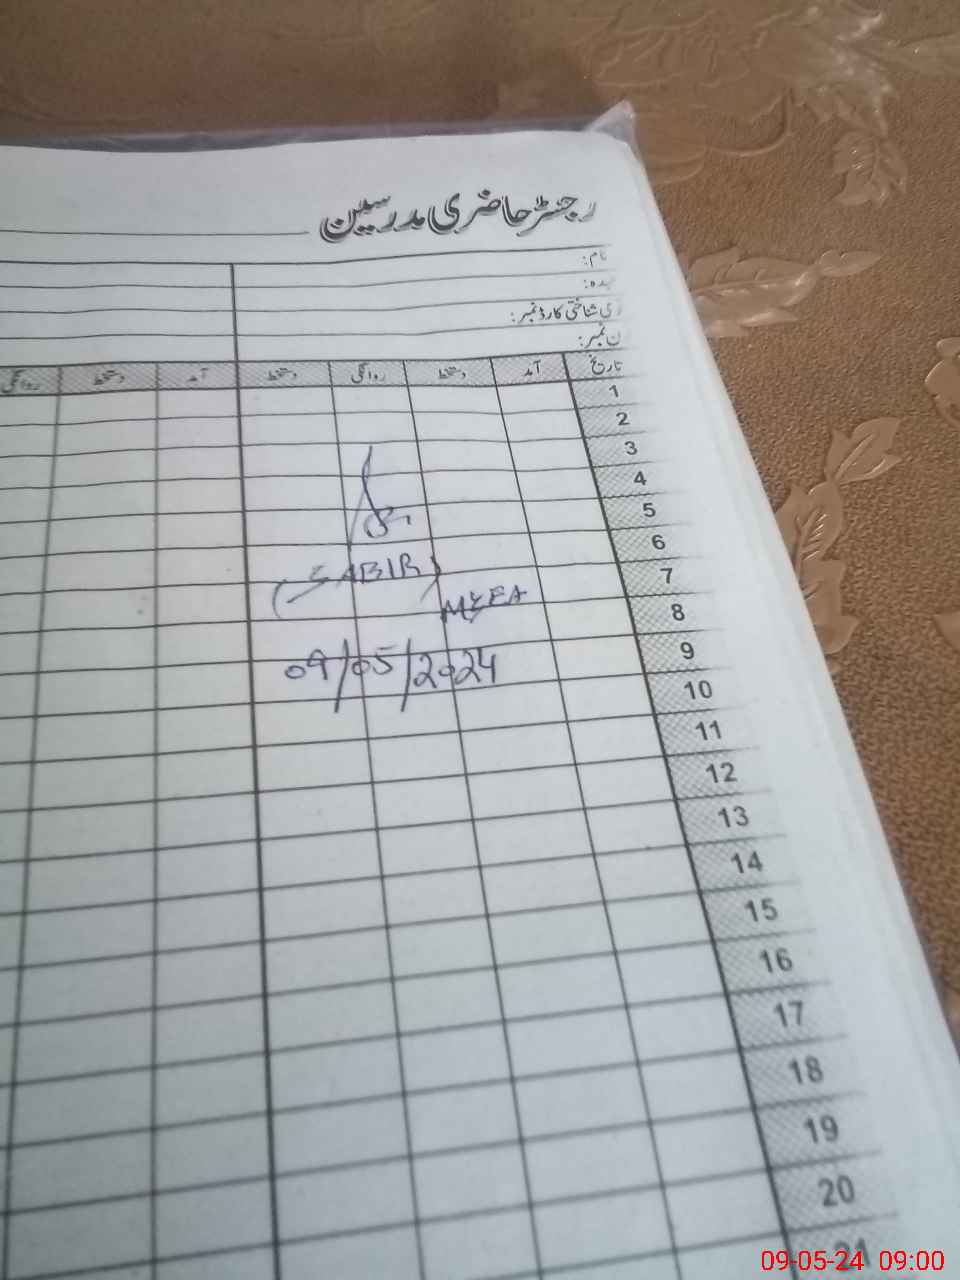 رجسٹر حاضری مدرسین
نام:
عہدہ:
شناختی کارڈ نمبر:
نمبر:
تاریخ آمد دستخط روانگی دستخط آمد دستخط روانگی
1
2
3
4
5
6
7
8
9
10
11
12
13
14
15
16
17
18
19
20
21
(SABIR)
MEEA
09/05/2024
09-05-24 09:00